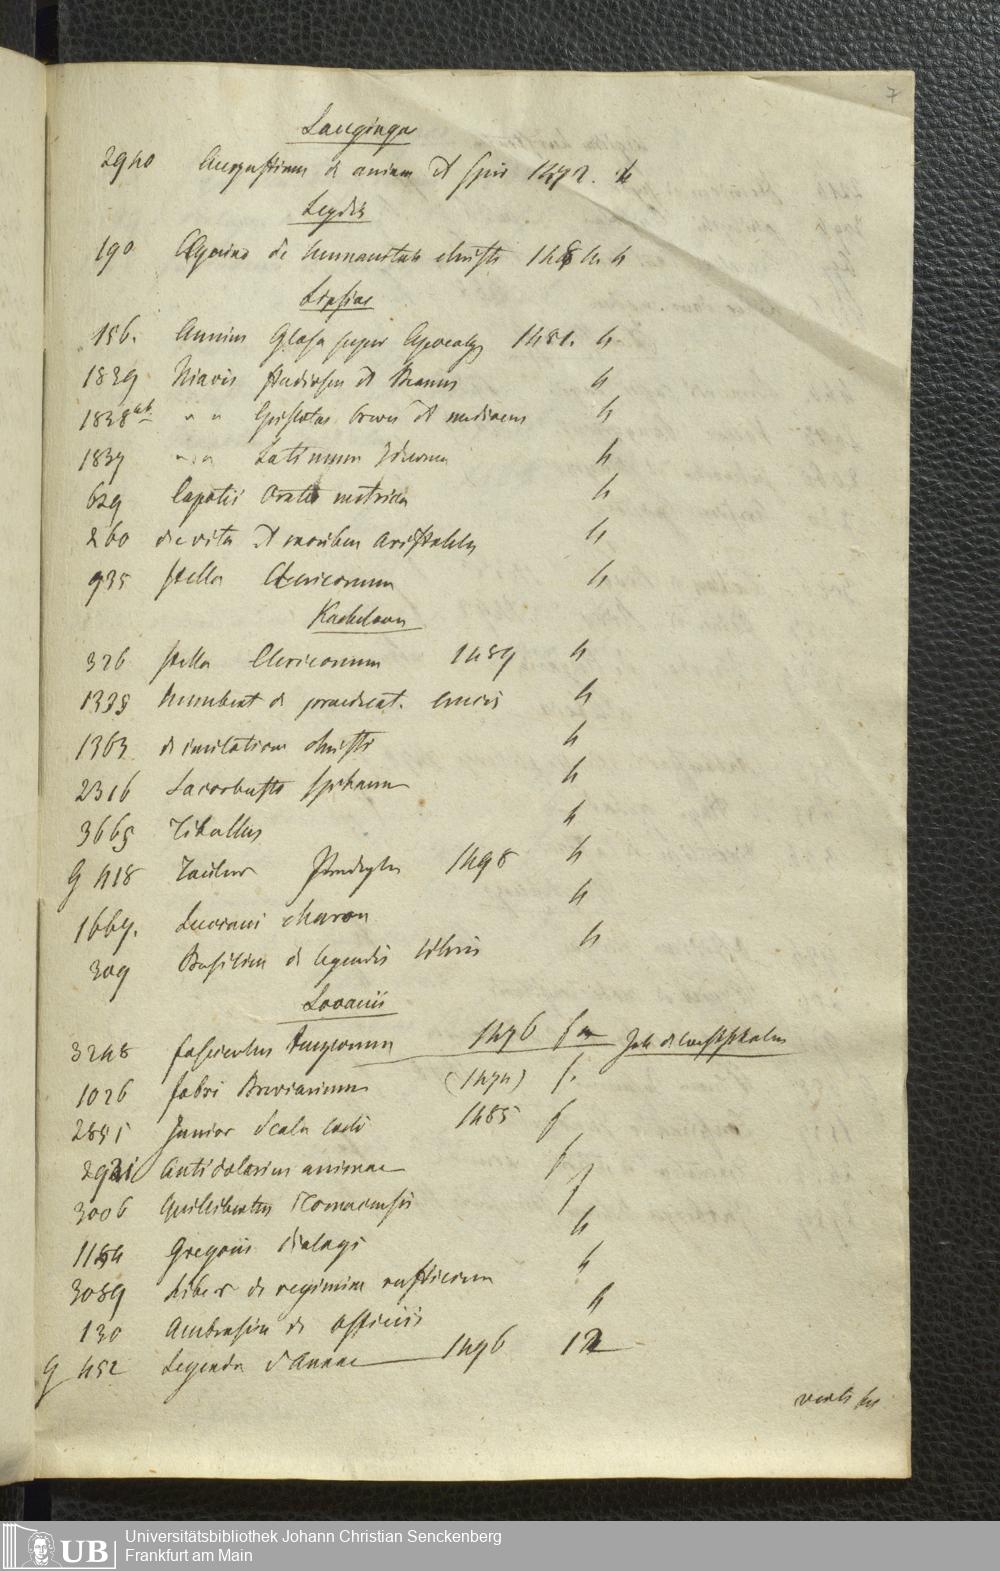 7
Lauginga
2940 Augustinus d anima et spir 1472. 4
Leydis
190 Aquino de humanitate christi 1484. 4
Lipsiae
156. Annius Glosa super Apocalyp 1481. 4
1839 Niavis 4
1838ab " " Epistolas breves et mediocres 4
1837 " " Latinum Idioma 4
629 Capotii Oratio metrica 4
260 de vita et moribus Aristotelis 4
935 stella Clericorum 4
326 stella Clericorum 1489 4
Humbert de praedicat. crucis 4
1363 de imitatione christi 4
2316 4
3665 Tibullus 4
G 418 Tauler 1498 4
1667. Luciani charon 4
309 Basilius de legendis libris 4
Lovanii
3248 fasciculus temporum 1476 f Joh de Westphalia
1026 fabri Breviarium (1474) f.
2851 Junior Scala coeli 1485 f
Antidotarius animae f
3006 Guillibertus Tornacensis f
1154 Gregorii dialogi 4
3089 Liber de regimine rusticorum 4
130 Ambrosius de officiis 4
G 452 Legenda S Annae 1496 12
Universitätsbibliothek Johann Christian Senckenberg
UB
Frankfurt am Main